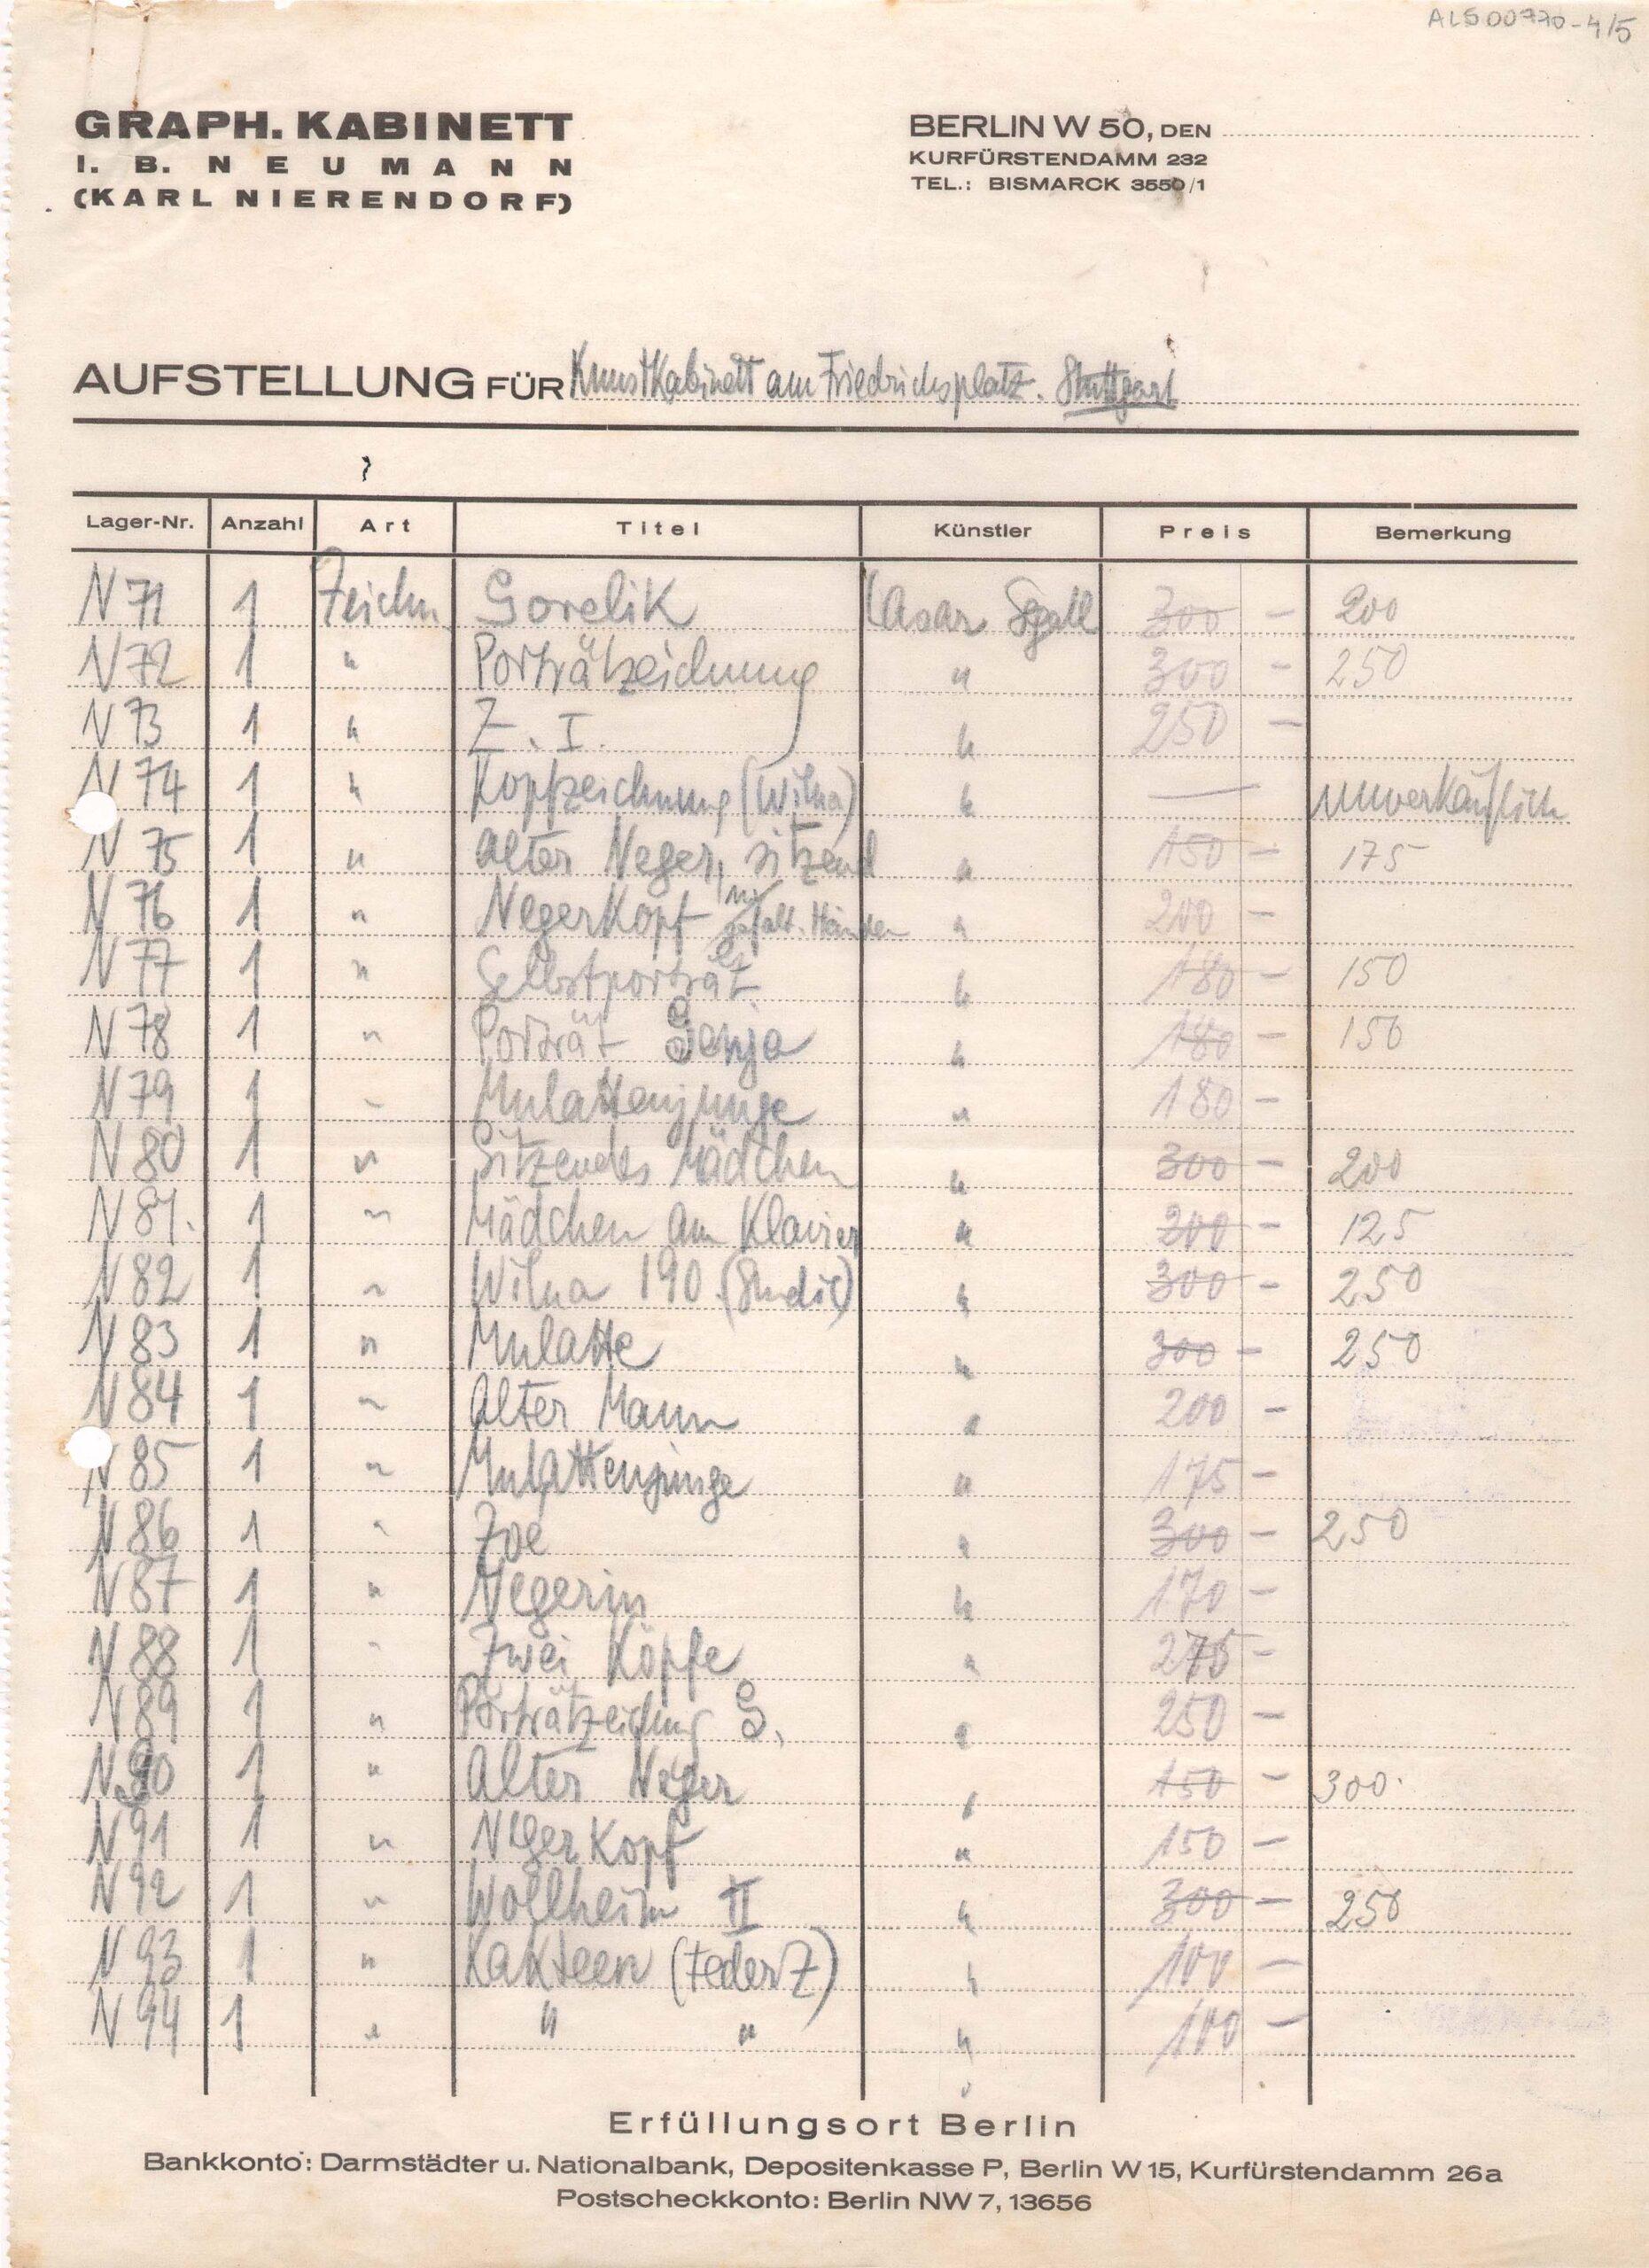 ALS00770-4/5
GRAPH. KABINETT
I. B. NEUMANN
(KARL NIERENDORF)
BERLIN W 50, DEN
KURFÜRSTENDAMM 232
TEL.: BISMARCK 3550/1
AUFSTELLUNG FÜR Kunstkabinett am Friedrichsplatz. Stuttgart
Lager-Nr. Anzahl Art Titel Künstler Preis Bemerkung
N 71 1 Zeichn. Gorelik Lasar Segall 300 - 200
N 72 1 " Porträtzeichnung " 300 - 250
N 73 1 " Z. I. " 250 -
N 74 1 " Kopfzeichnung (Wilna) " — unverkäuflich
N 75 1 " Alter Neger, sitzend " 150 - 175
N 76 1 " Negerkopf m/ gefalt. Händen " 200 -
N 77 1 " Selbstporträt " 180 - 150
N 78 1 " Porträt " 180 - 150
N 79 1 " Mulattenjunge " 180 -
N 80 1 " Sitzendes Mädchen " 300 - 200
N 81. 1 " Mädchen am Klavier " 200 - 125
N 82 1 " Wilna 190. (Studie) " 300 - 250
N 83 1 " Mulatte " 300 - 250
N 84 1 " Alter Mann " 200 -
N 85 1 " Mulattenjunge " 175 -
N 86 1 " Zoe " 300 - 250
N 87 1 " Negerin " 170 -
N 88 1 " Zwei Köpfe " 275 -
N 89 1 " Porträtzeichng S. " 250 -
N 90 1 " Alter Neger " 150 - 300.
N 91 1 " Negerkopf " 150 -
N 92 1 " Wollheim II " 300 - 250
N 93 1 " Kakteen (FederZ) " 100 -
N 94 1 " " " " 100 -
Erfüllungsort Berlin
Bankkonto: Darmstädter u. Nationalbank, Depositenkasse P, Berlin W 15, Kurfürstendamm 26a
Postscheckkonto: Berlin NW 7, 13656